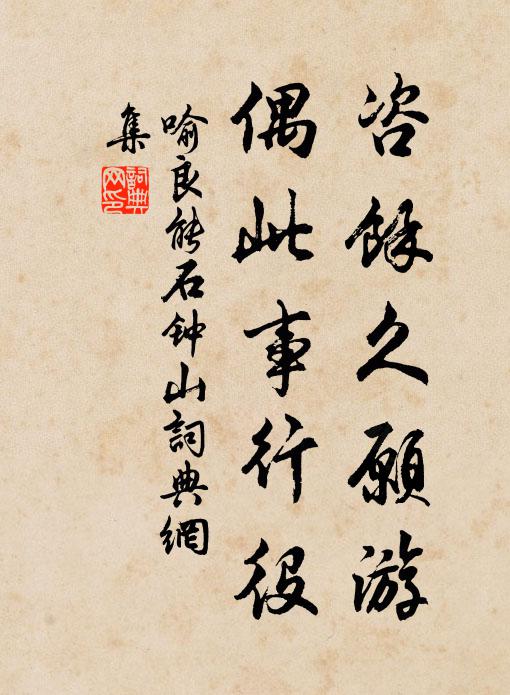 咨餘久願游
偶此事行役
喻良能石钟山詞典網
集
詞典
网印